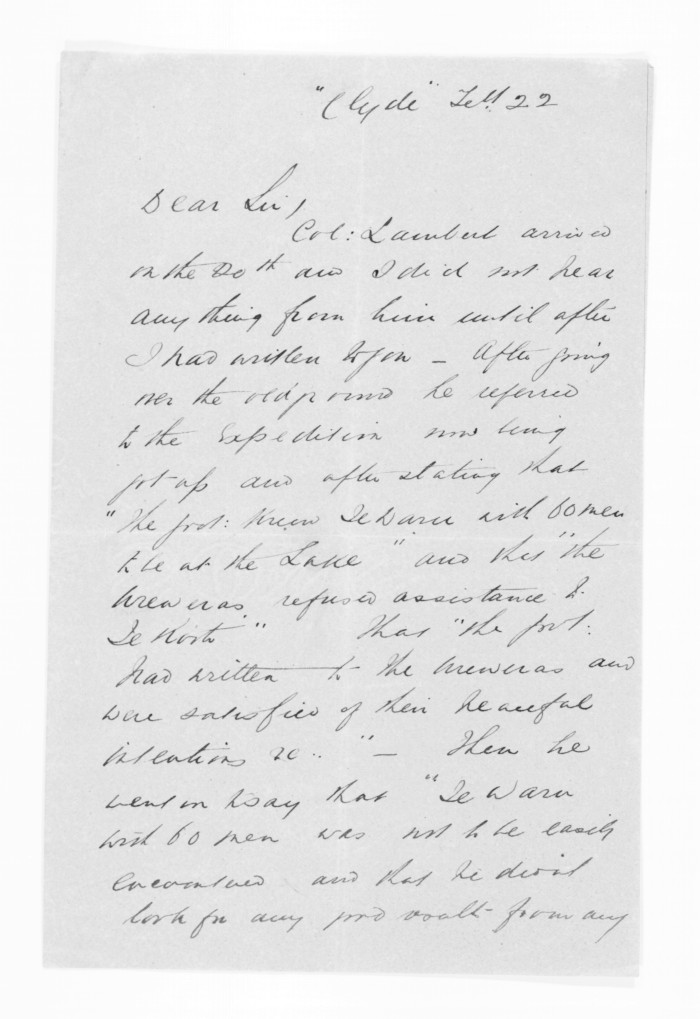 "Clyde" Feb 22
Dear Sir,
Col: Lambert arrived
on the 20th and I did not hear
any thing from him until after
I had written to you – After going
over the old ground he referred
to the Expedition now being
got up and after stating that
"the Govt: knew Te Waru with 60 men
to be at the Lake" and that "the
Ureweras refused assistance to
Te Kooti" That "the Govt:
had written to the Ureweras and
were satisfied of their peaceful
intentions &c.." – Then he
went on to say that "Te Waru
with 60 men was not to be easily
encountered and that he didn't
look for any good result from any